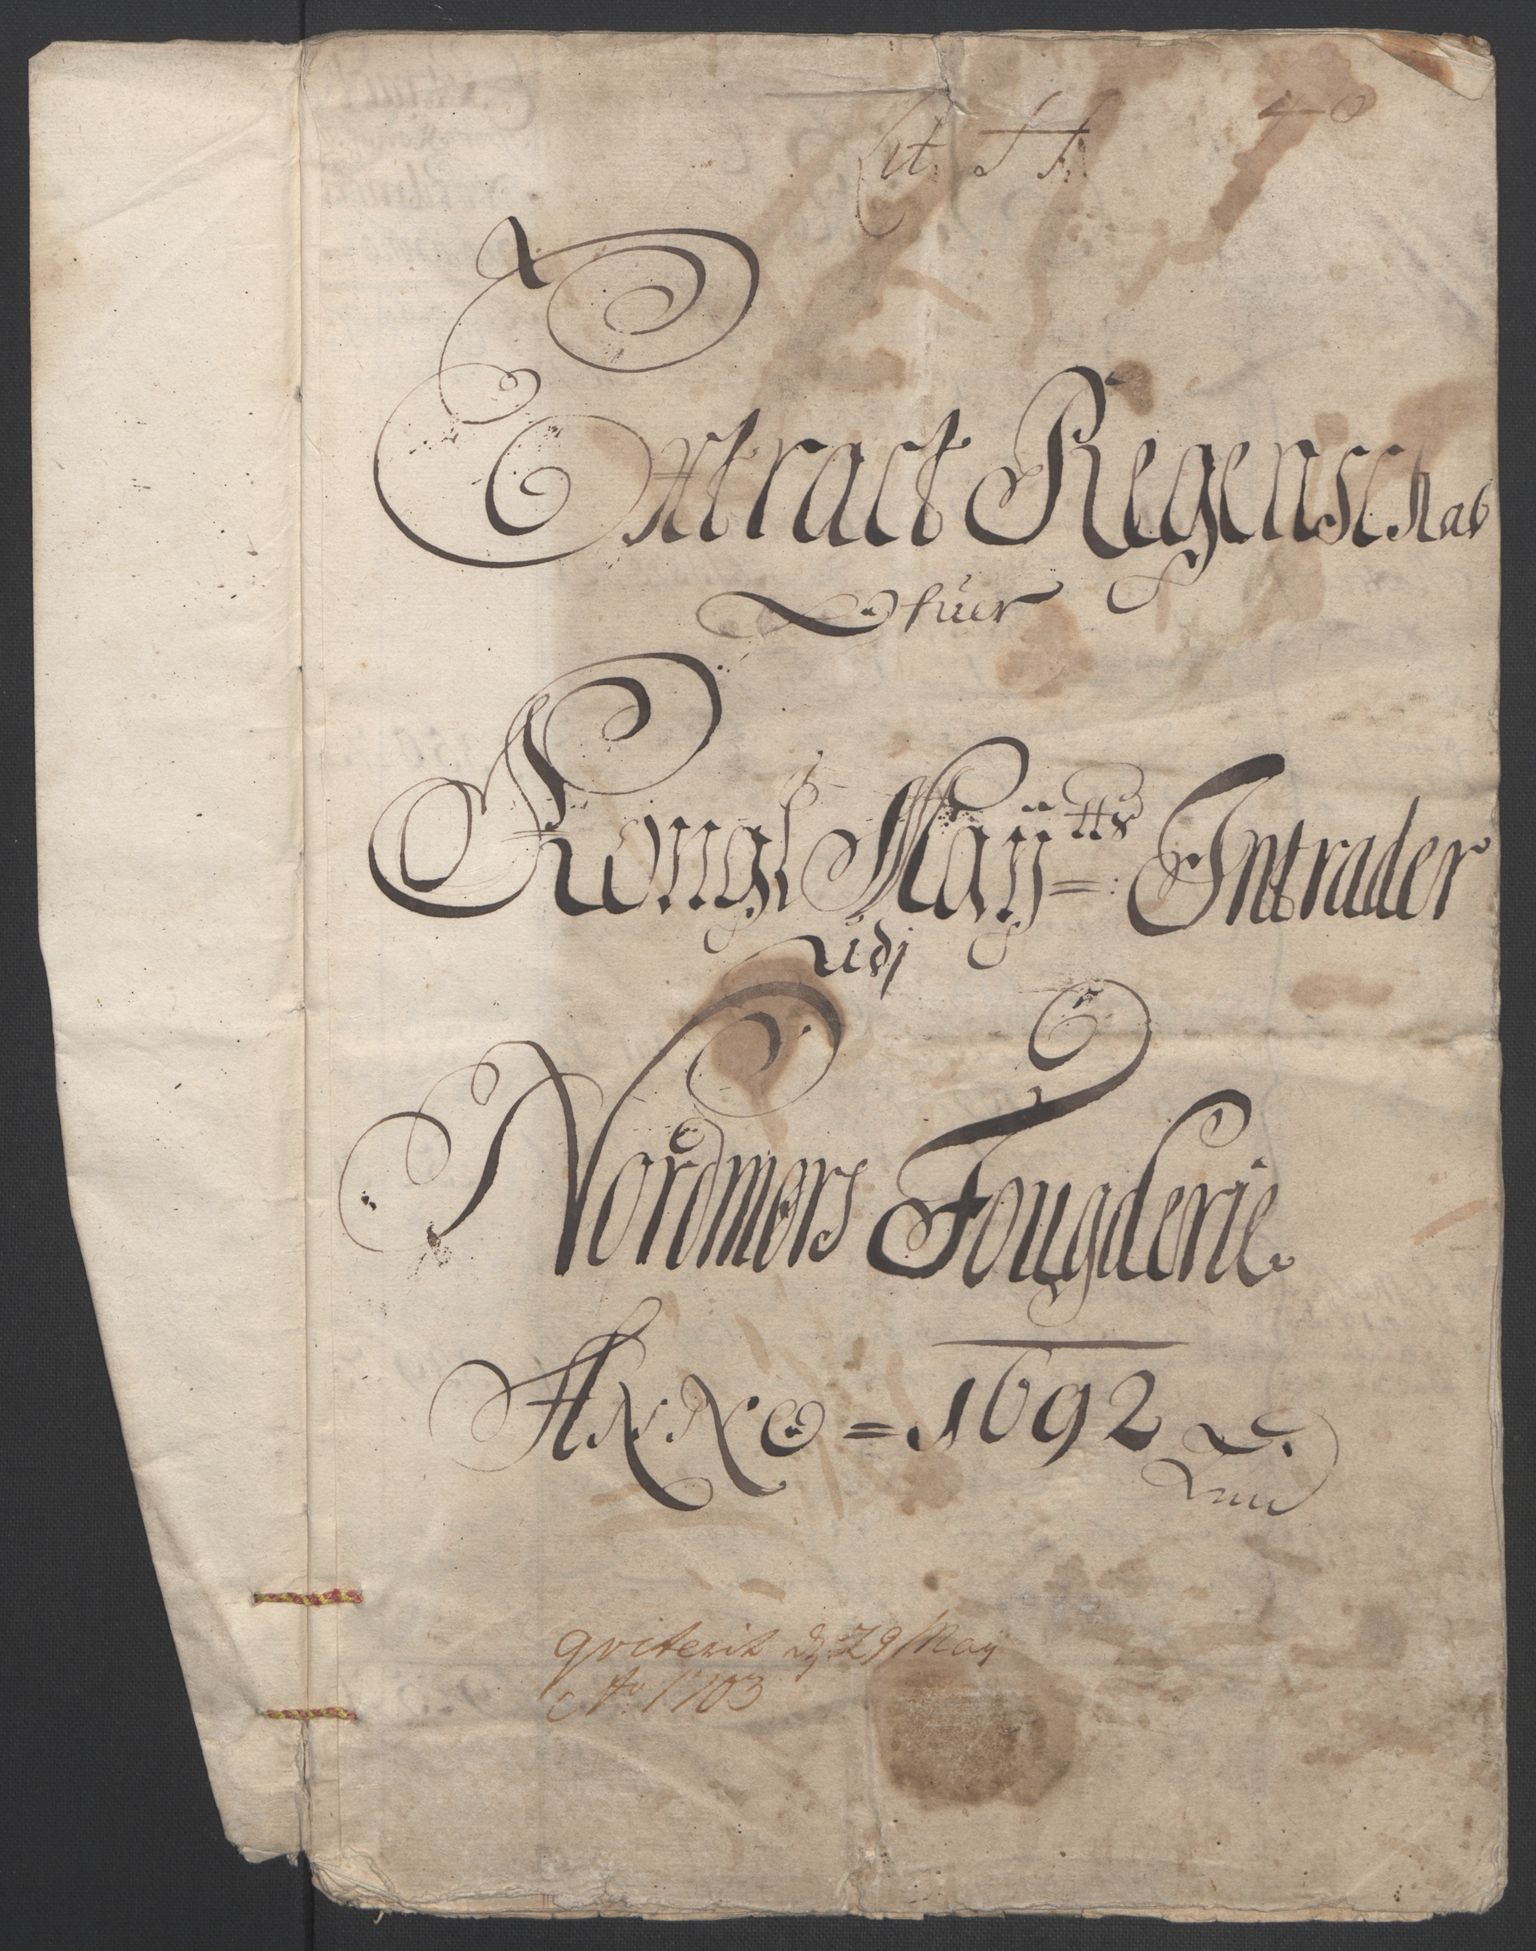 Lit. H.
Extract Regenschab
ofuer
Kongl Maÿtts Intrader
Udj
Nordmørs Fougderie
ANNO = 1692
qviterit d 29 Maÿ
Ao 1703